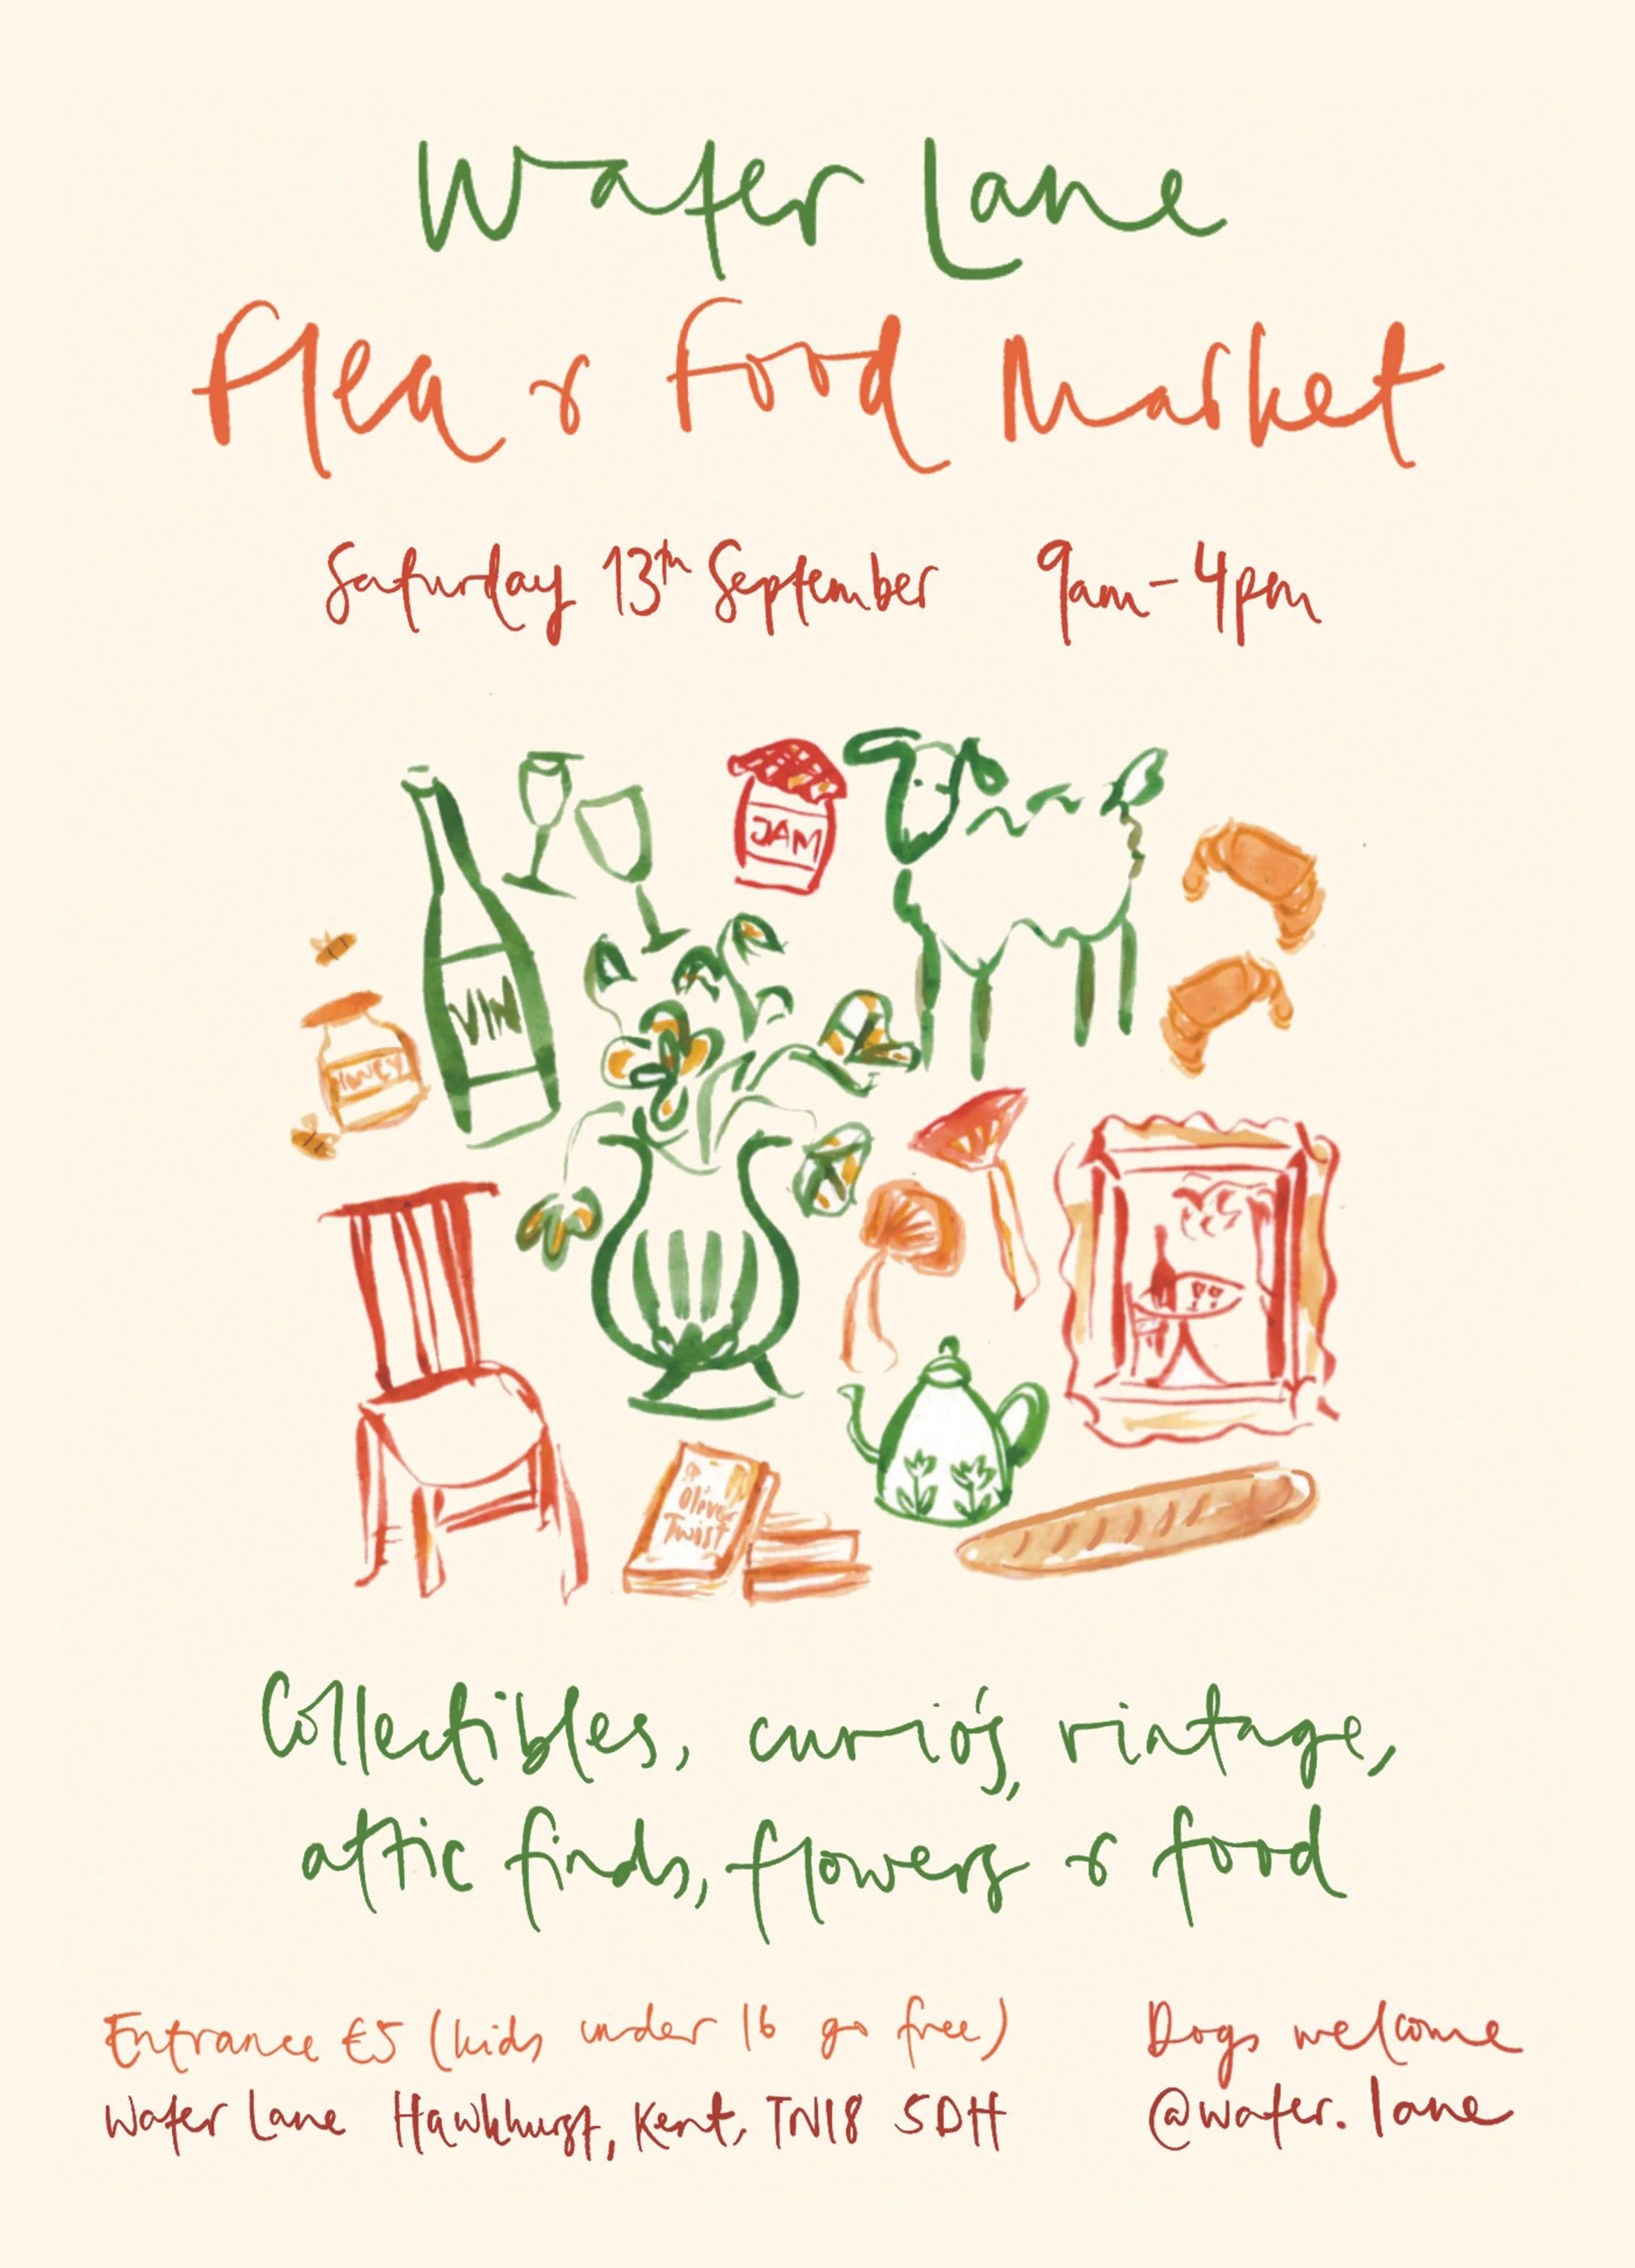 Water Lane
Flea & Food Market
Saturday 13th September 9am-4pm
JAM
VIN
HONEY
Oliver
Twist
Collectibles, curio's, vintage,
attic finds, flowers & food
Entrance £5 (kids under 16 go free)
Dogs welcome
Water Lane Hawkhurst, Kent, TN18 5DH
@water.lane